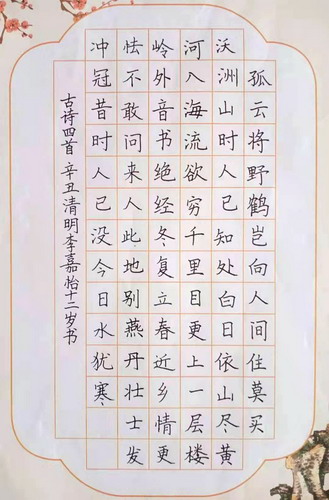 孤云将野鹤岂向人间住莫买
沃洲山时人已知处白日依山尽黄
河入海流欲穷千里目更上一层楼
岭外音书绝经冬复立春近乡情更
怯不敢问来人此地别燕丹壮士发
冲冠昔时人已没今日水犹寒
古诗四首 辛丑清明李嘉怡十二岁书